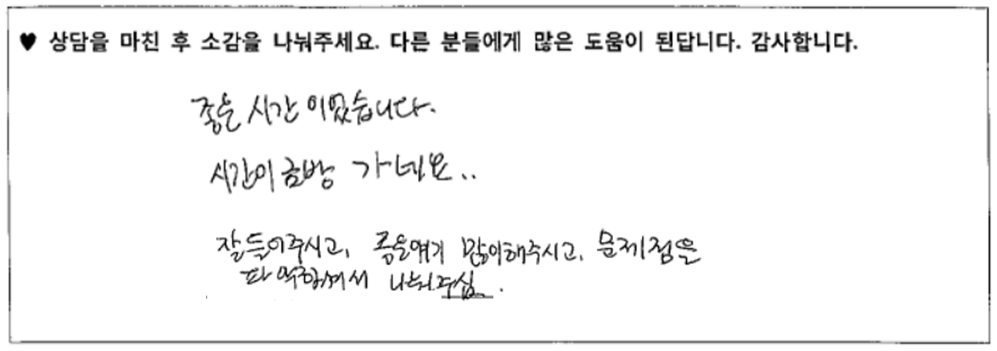 ♥ 상담을 마친 후 소감을 나눠주세요. 다른 분들에게 많은 도움이 된답니다. 감사합니다.
좋은 시간이었습니다.
시간이 금방 가네요..
잘들어주시고, 좋은얘기 많이해주시고, 문제점을
파악하셔서 나눠주심.